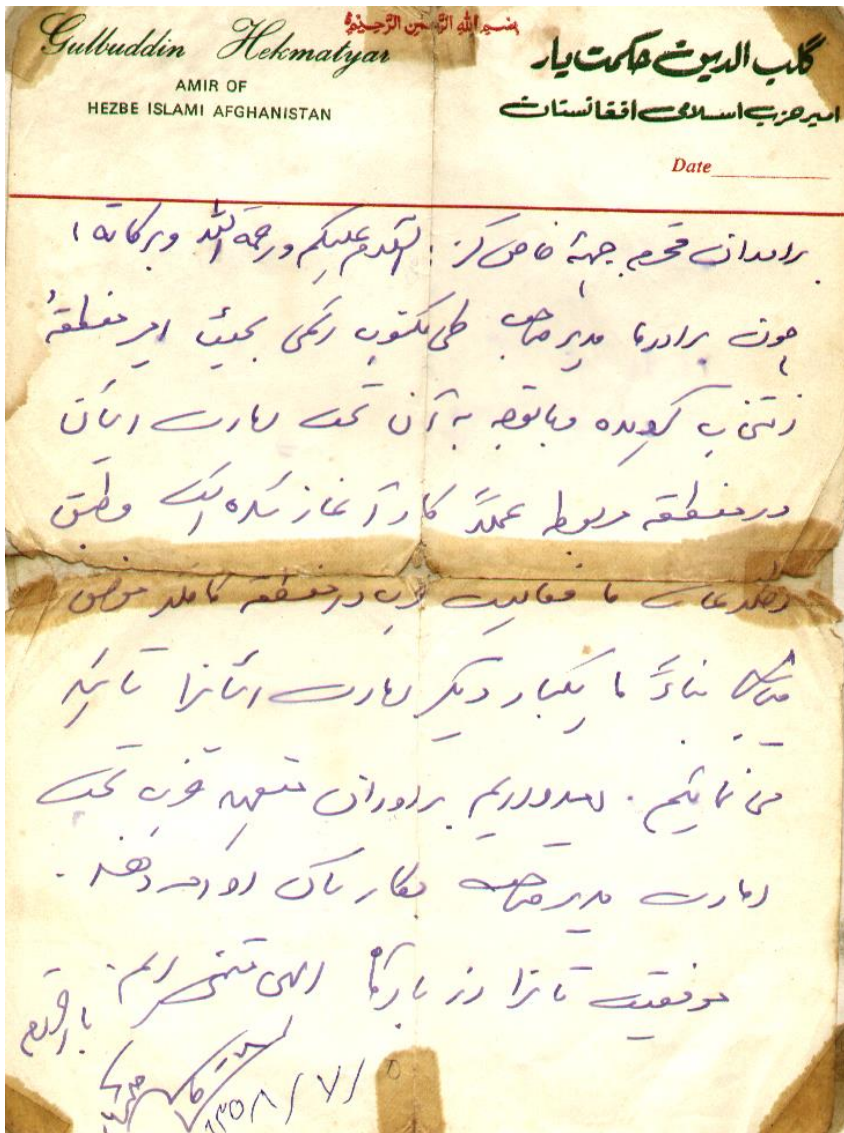 بسم الله الرحمن الرحیم
Gulbuddin Hekmatyar
AMIR OF
HEZBE ISLAMI AFGHANISTAN
گلب الدین حکمت یار
امیر حزب اسلامی افغانستان
Date
برادران محترم جبهۀ خاص کنر: السلام علیکم ورحمة الله وبرکاته!
چون برادر ما مدیر صاحب طی مکتوب رسمی بحیث امیر منطقۀ
انتخاب گردیده وباتوجه به آن تحت امارت ایشان
در منطقه مربوط عملاً کار آغاز شده است وطبق
اطلاعات ما فعالیت حزب در منطقه کاملاً موفق
میباشد بناءً ما یکبار دیگر امارت ایشانرا تائید
می نمائیم. امیدواریم برادران متعهد حزب تحت
امارت مدیر صاحب بکار شان ادامه دهند.
موفقیت تانرا از بارگاه الهی تمنی داریم. با احترام
۱۳۵۸/۷/۵